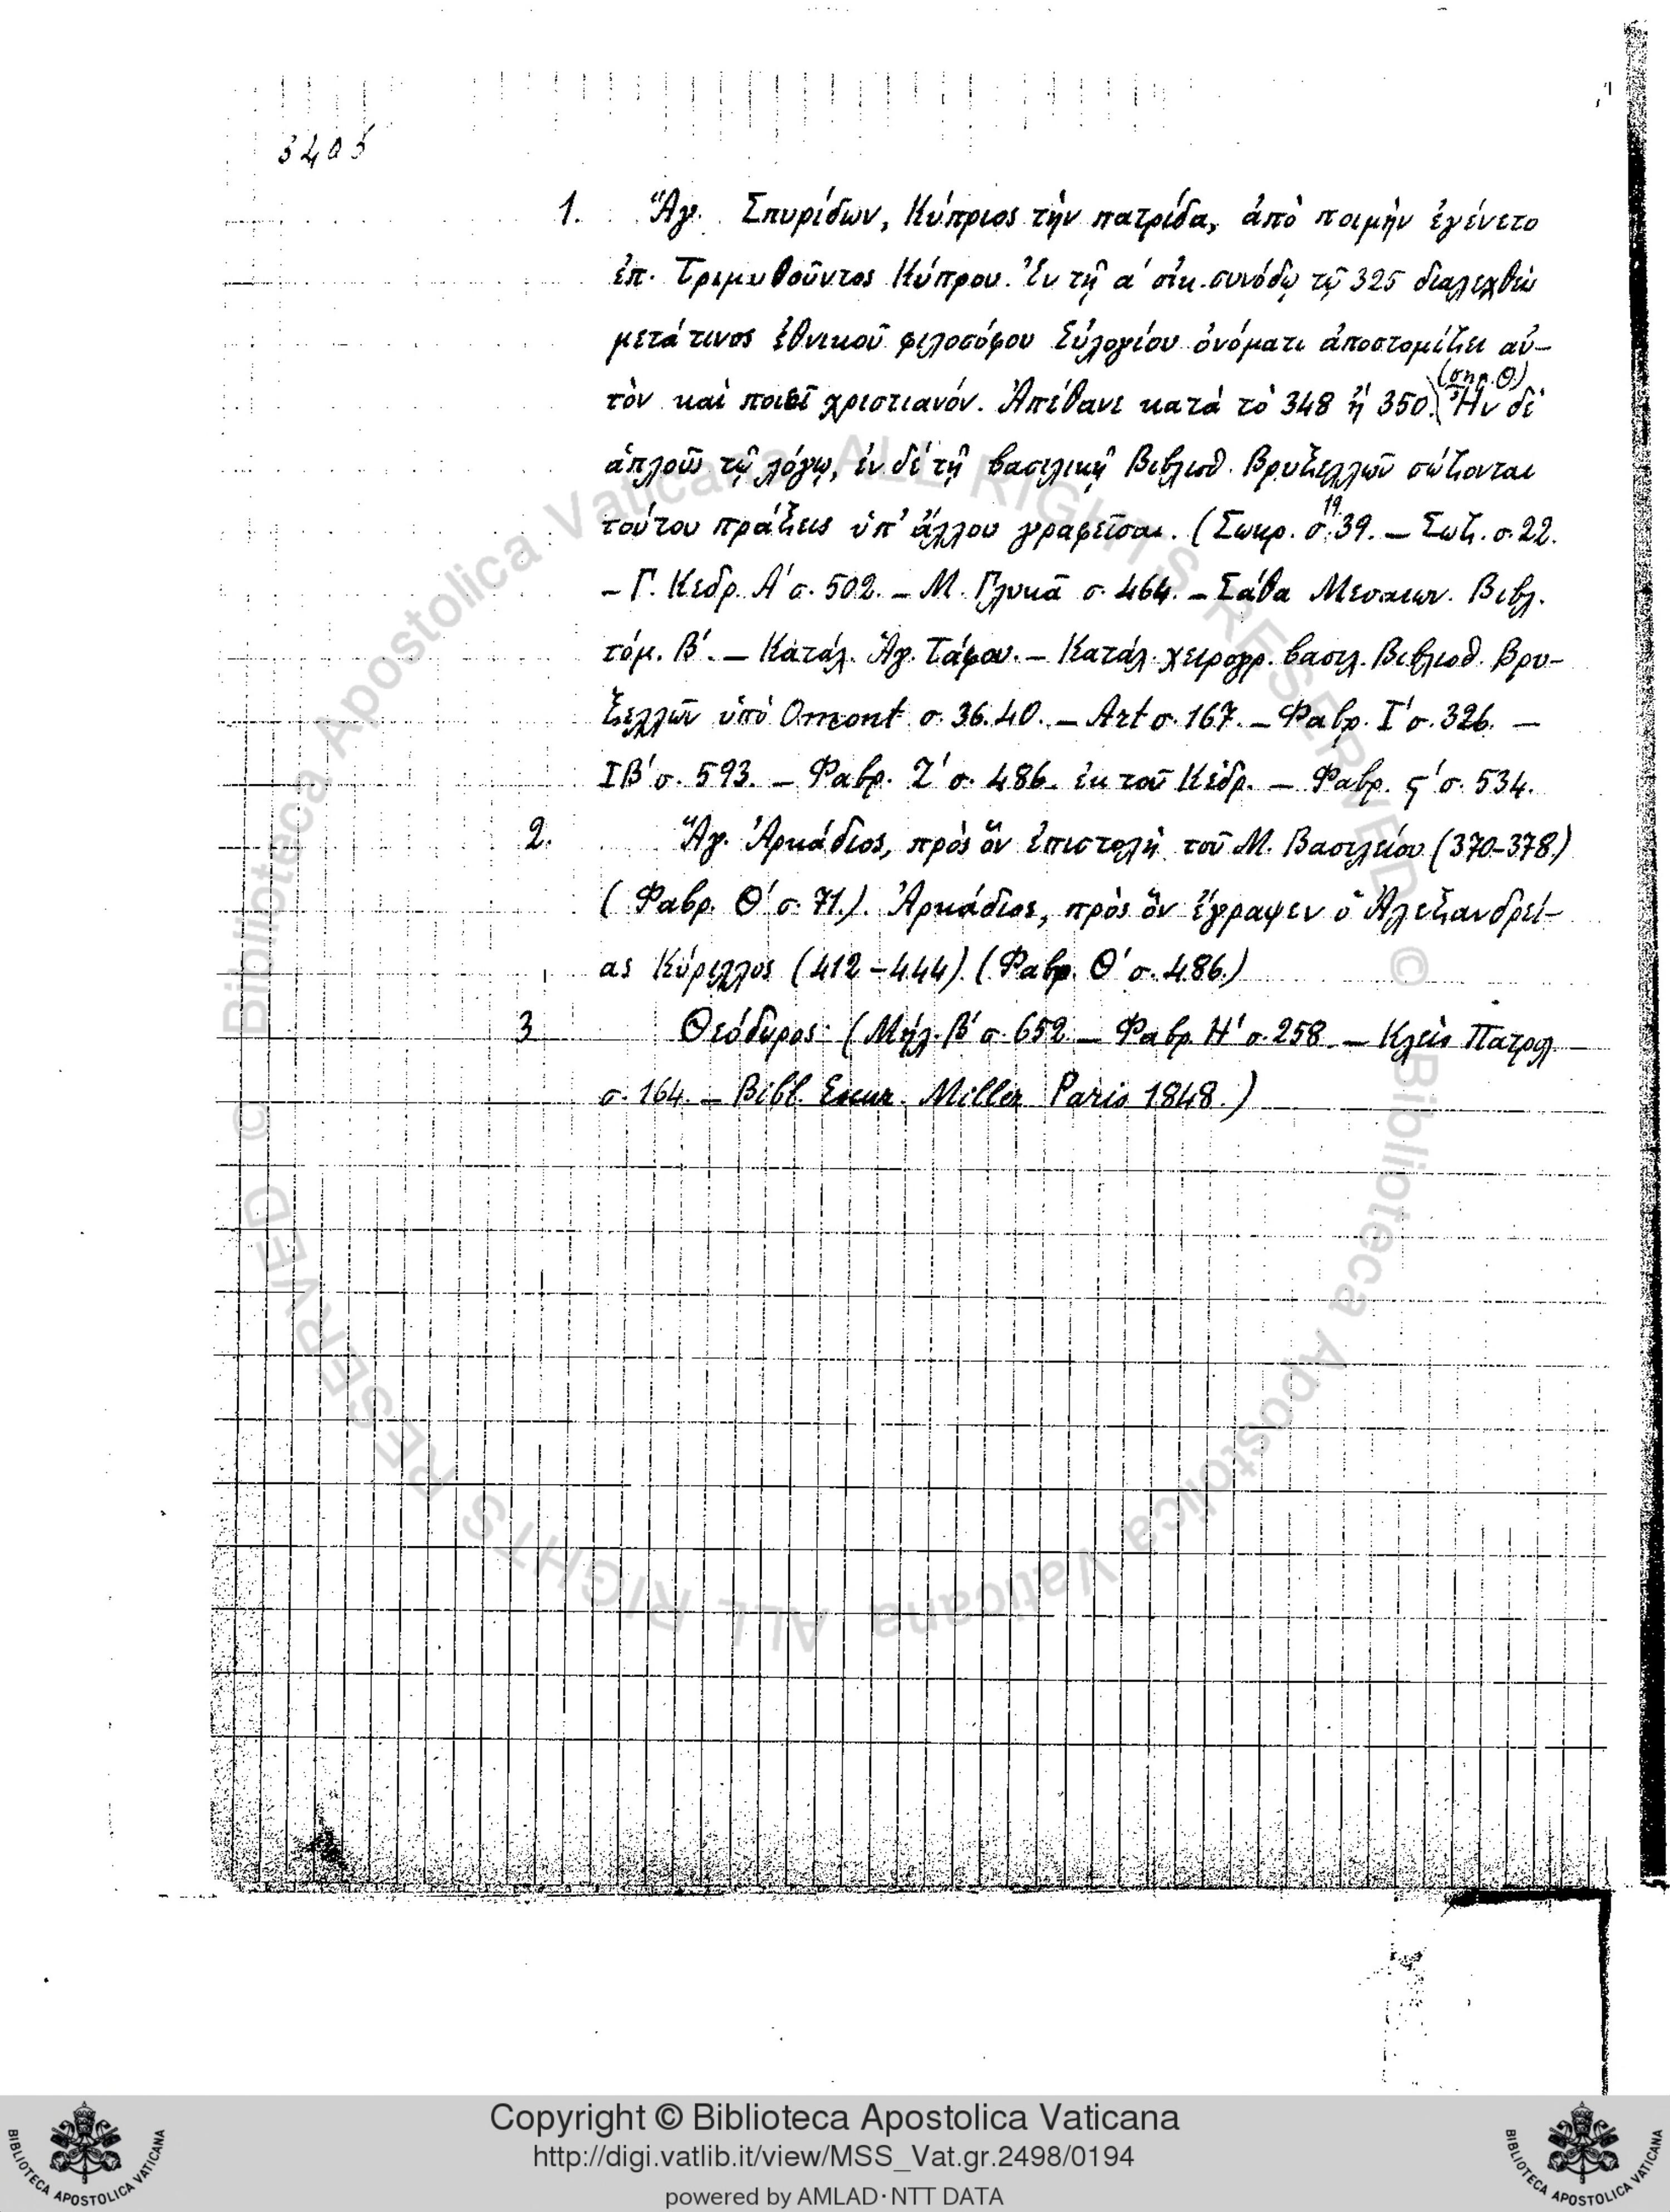 3405
1. Ἅγ. Σπυρίδων, Κύπριος τὴν πατρίδα, ἀπὸ ποιμὴν ἐγένετο
ἐπ. Τριμυθοῦντος Κύπρου. Ἐν τῇ α΄ οἰκ. συνόδῳ τῷ 325 διαλεχθεὶς
μετά τινος ἐθνικοῦ φιλοσόφου Εὐλογίου ὀνόματι ἀποστομίζει αὐ-
τὸν καὶ ποιεῖ χριστιανόν. Ἀπέθανε κατὰ τὸ 348 ἢ 350. (σημ. Θ) Ἦν δὲ
ἁπλοῦς τῷ λόγῳ, ἐν δὲ τῇ βασιλικῇ Βιβλιοθ. Βρυξελλῶν σώζονται
τούτου πράξεις ὑπ' ἄλλου γραφεῖσαι. (Σωκρ. σ. 19. 39. – Σωζ. σ. 22.
– Γ. Κεδρ. Α΄ σ. 502. – Μ. Γλυκᾶ σ. 464. – Σάθα Μεσαιων. Βιβλ.
τόμ. Β΄. – Κατάλ. Ἁγ. Τάφου. – Κατάλ. χειρογρ. βασιλ. Βιβλιοθ. Βρυ-
ξελλῶν ὑπὸ Omont σ. 36. 40. – Art σ. 167. – Φαβρ. Ι΄ σ. 326. –
ΙΒ΄ σ. 593. – Φαβρ. Ζ΄ σ. 486. ἐκ τοῦ Κέδρ. – Φαβρ. ς΄ σ. 534.
2. Ἅγ. Ἀρκάδιος, πρὸς ὃν ἐπιστολὴ τοῦ Μ. Βασιλείου (370-378)
(Φαβρ. Θ΄ σ. 71.). Ἀρκάδιος, πρὸς ὃν ἔγραψεν ὁ Ἀλεξανδρεί-
ας Κύριλλος (412-444). (Φαβρ. Θ΄ σ. 486.)
3 Θεόδωρος (Μηλ. Β΄ σ. 652. – Φαβρ. Η΄ σ. 258. – Κλεὶς Πατρολ.
σ. 164. – Bibl. Escur. Miller Paris 1848.)
© Biblioteca Apostolica Vaticana ALL RIGHTS RESERVED © Biblioteca Apostolica Vaticana ALL RIGHTS RESERVED
Copyright © Biblioteca Apostolica Vaticana
http://digi.vatlib.it/view/MSS_Vat.gr.2498/0194
powered by AMLAD·NTT DATA
BIBLIOTECA APOSTOLICA VATICANA
BIBLIOTECA APOSTOLICA VATICANA